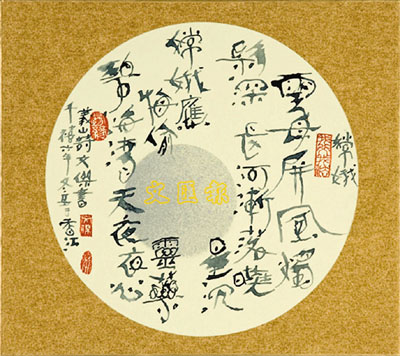 嫦娥
雲母屏風燭
影深長河漸落曉
星沉
嫦娥應
悔偷
靈藥
碧海青天夜夜心
義山詩文傑書
千禧六年冬香江
文匯報